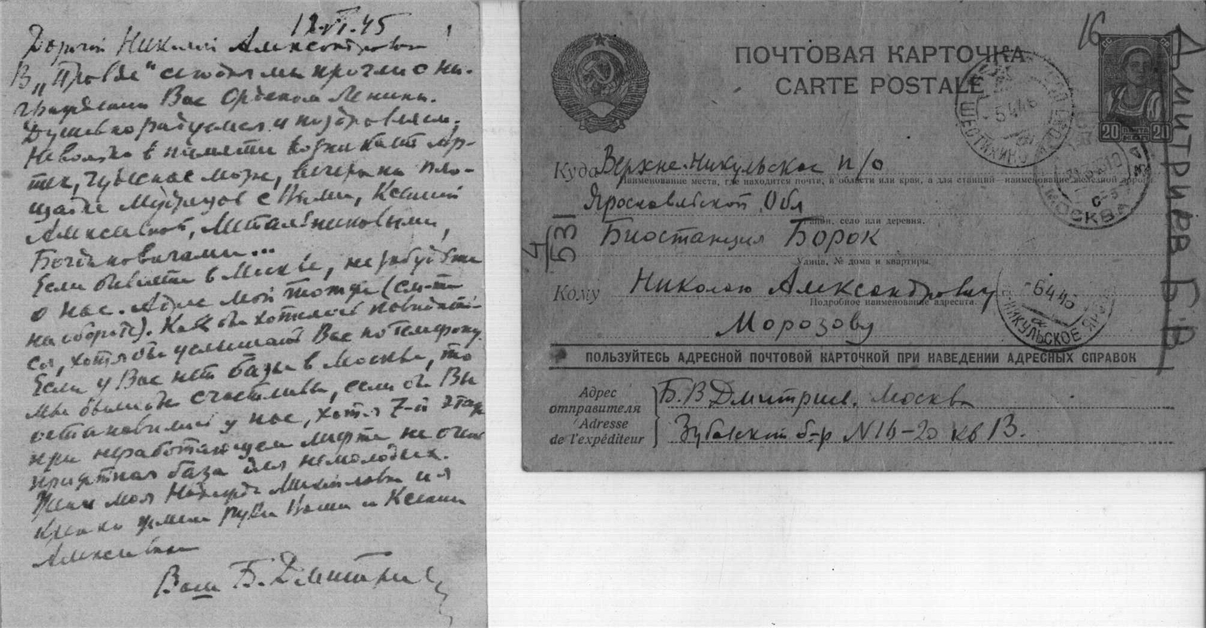 12.VI.45
Дорогой Николай Александрович!
В "Правде" сегодня мы прочли о на-
граждении Вас Орденом Ленина.
Душевно радуемся и поздравляем.
Невольно в памяти возникает Ар-
тек, Чудесное море, вечера на пло-
щадке с Вами, Ксенией
Алексеевной, Метальниковыми,
Богдановичами...
Если бываете в Москве, не забудьте
о нас. Адрес мой тот же (см-те
на обороте). Как бы хотелось повидать-
ся, хотя бы услышать Вас по телефону.
Если у Вас нет базы в Москве, то
мы были бы счастливы, если бы Вы
остановились у нас, хотя 7-й этаж
при неработающем лифте не очень
приятная база для немолодых.
Жена моя Надежда Михайловна и я
крепко жмем руки Ваши и Ксении
Алексеевны
Ваш Б. Дмитриев
ПОЧТОВАЯ КАРТОЧКА
CARTE POSTALE
16
20 20
Куда Верхне-Никульское п/о
Наименование места, где находится почта, и области или края, а для станций - наименование железной дороги
Ярославльской Обл
Район, село или деревня.
Биостанция Борок
Улица, № дома и квартиры.
Кому Николаю Александровичу
Подробное наименование адресата.
Морозову
ПОЛЬЗУЙТЕСЬ АДРЕСНОЙ ПОЧТОВОЙ КАРТОЧКОЙ ПРИ НАВЕДЕНИИ АДРЕСНЫХ СПРАВОК
Адрес
отправителя
Adresse
de l'expéditeur
Б. В Дмитриев. Москва
Зубовский б-р N 16-20 кв 13.
4
531
Дмитриев Б. В
МОСКВА
НИКУЛЬСКОЕ ЯРОС